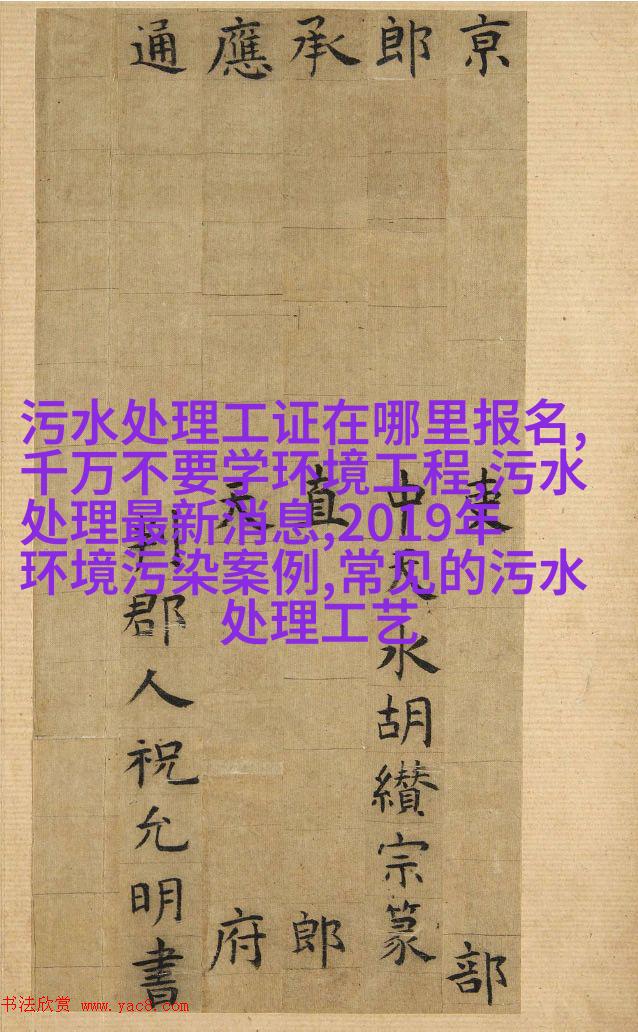 京部
郎中天水胡纘宗篆
承直郎
應天府
通判郡人祝允明書
污水处理工证在哪里报名,
千万不要学环境工程,污水
处理最新消息,2019年
环境污染案例,常见的污水
处理工艺
书法欣赏 www.yac8.com